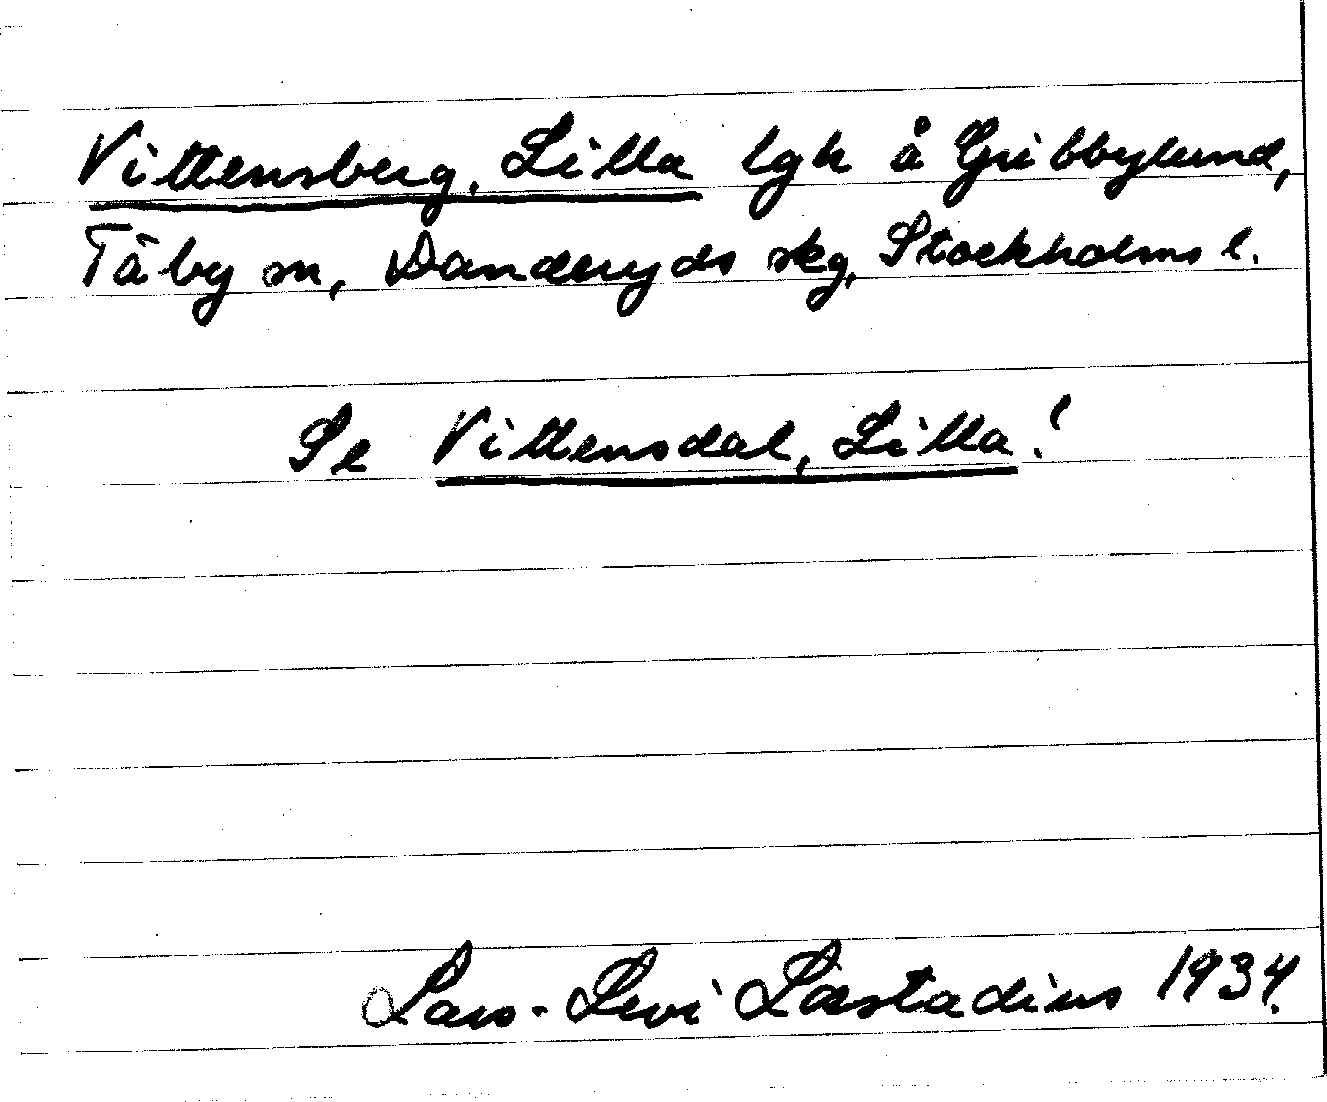 Vittensberg, Lilla lgh å Gribbylund,
Täby sn, Danderyds skg, Stockholms l.
Se Vittensdal, Lilla!
Lars-Levi Læstadius 1934.